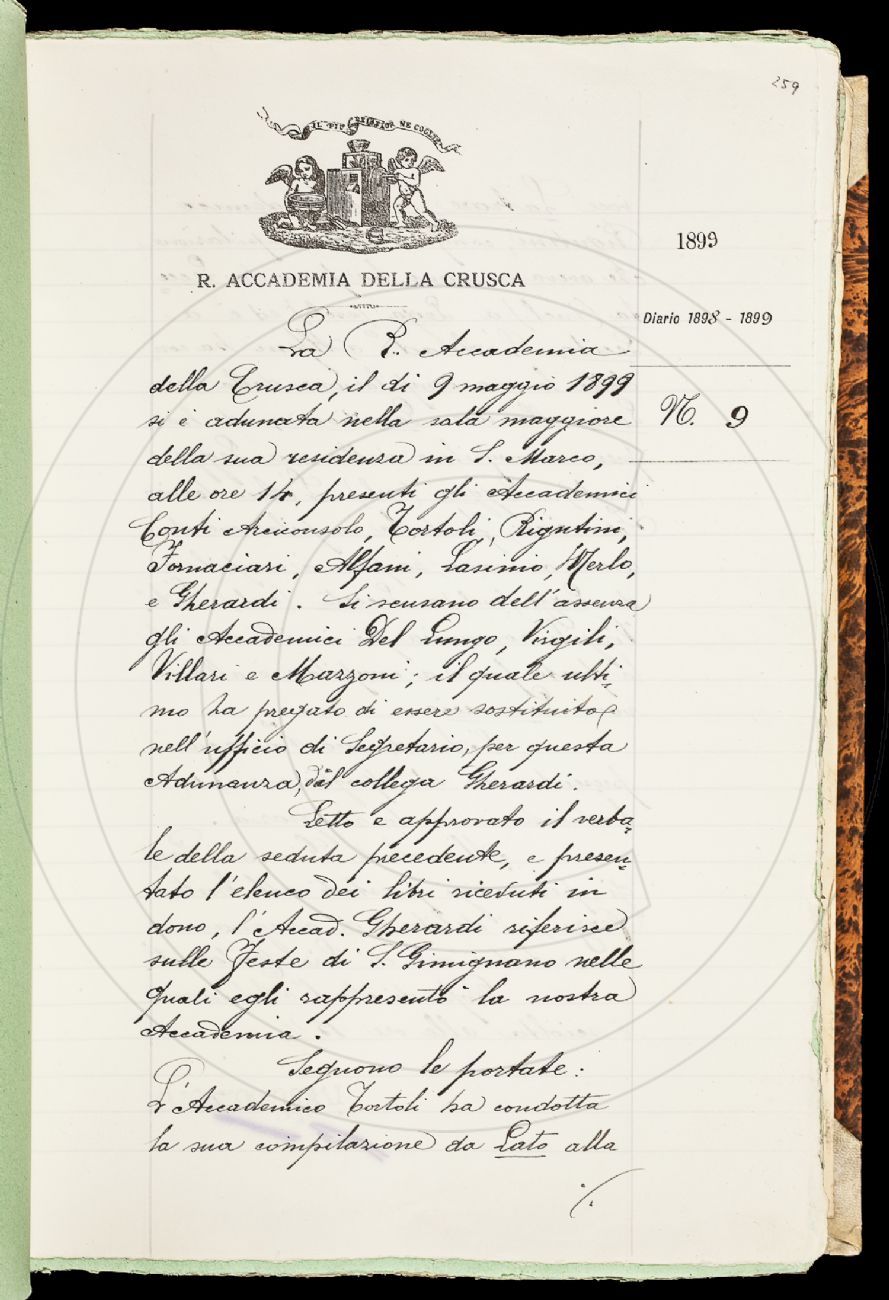 259
IL PIÙ BEL FIOR NE COGLIE
R. ACCADEMIA DELLA CRUSCA
1899
Diario 1898 - 1899
N. 9
La R. Accademia
della Crusca, il di 9 maggio 1899
si è adunata nella sala maggiore
della sua residenza in S. Marco,
alle ore 14, presenti gli Accademici
Conti Arciconsolo, Tortoli, Rigutini,
Fornaciari, Alfani, Lasinio, Merlo,
e Gherardi. Si scusano dell'assenza
gli Accademici Del Lungo, Virgili,
Villari e Mazzoni; il quale ulti-
mo ha pregato di essere sostituito
nell'ufficio di Segretario, per questa
Adunanza, dal collega Gherardi.
Letto e approvato il verba-
le della seduta precedente, e presen-
tato l'elenco dei libri ricevuti in
dono, l'Accad. Gherardi riferisce
sulle Feste di S. Gimignano nelle
quali egli rappresentò la nostra
Accademia.
Seguono le portate:
L'Accademico Tortoli ha condotta
la sua compilazione da Lato alla
./.